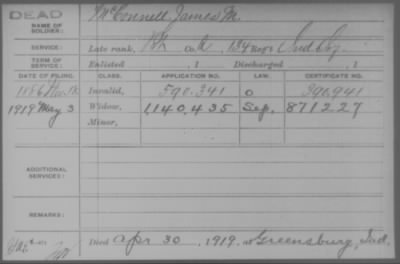 DEAD
NAME OF SOLDIER: McConnell, James M.
SERVICE: Late rank, Co. 134 Ind Inf.
TERM OF SERVICE: Enlisted , 1 Discharged , 1
DATE OF FILING. CLASS. APPLICATION NO. LAW. CERTIFICATE NO.
1886 Invalid, 590.341 O 390,941
1919 May 3 Widow, 1,140,435 Sep. 871227
Minor,
ADDITIONAL SERVICES:
REMARKS:
Died Apr 30, 1919, at Greensburg, Ind.